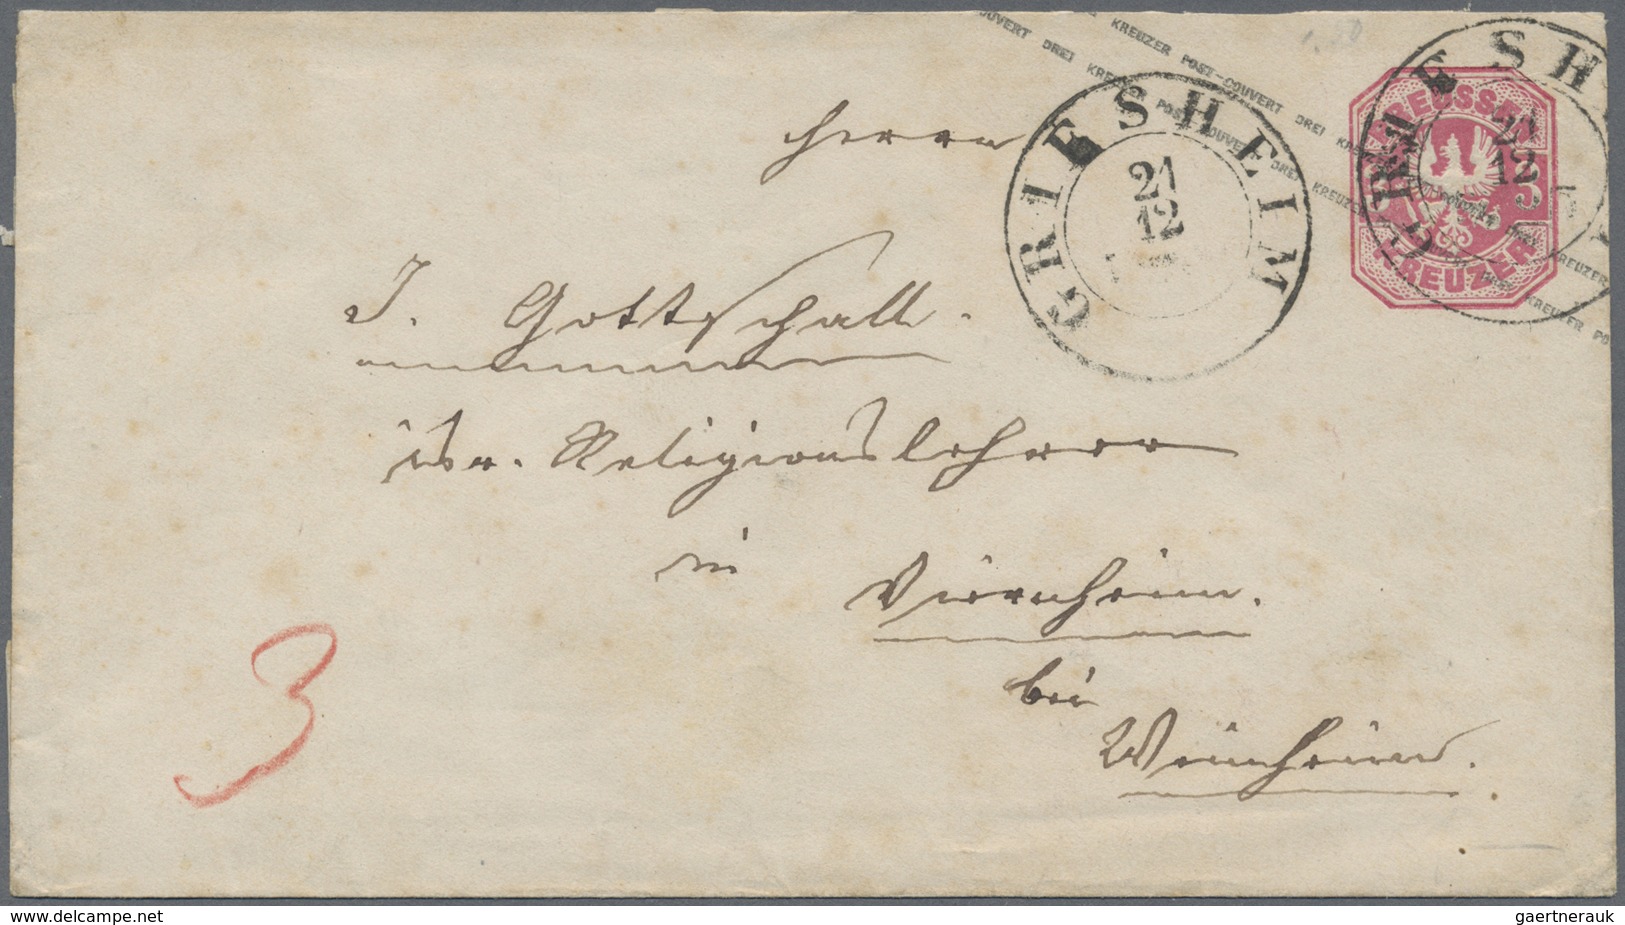 DREI KREUZER POST-COUVERT DREI KREUZER
COUVERT DREI KREUZER POST-COUVERT DREI KREUZER
GRIESHEIM
21
12
PREUSSEN
3
KREUZER
GRIESH
12
Herrn
J. Gottschall.
isr. Religionslehrer
in
Viernheim.
bei
Weinheim.
3
www.delcampe.net
gaertnerauk